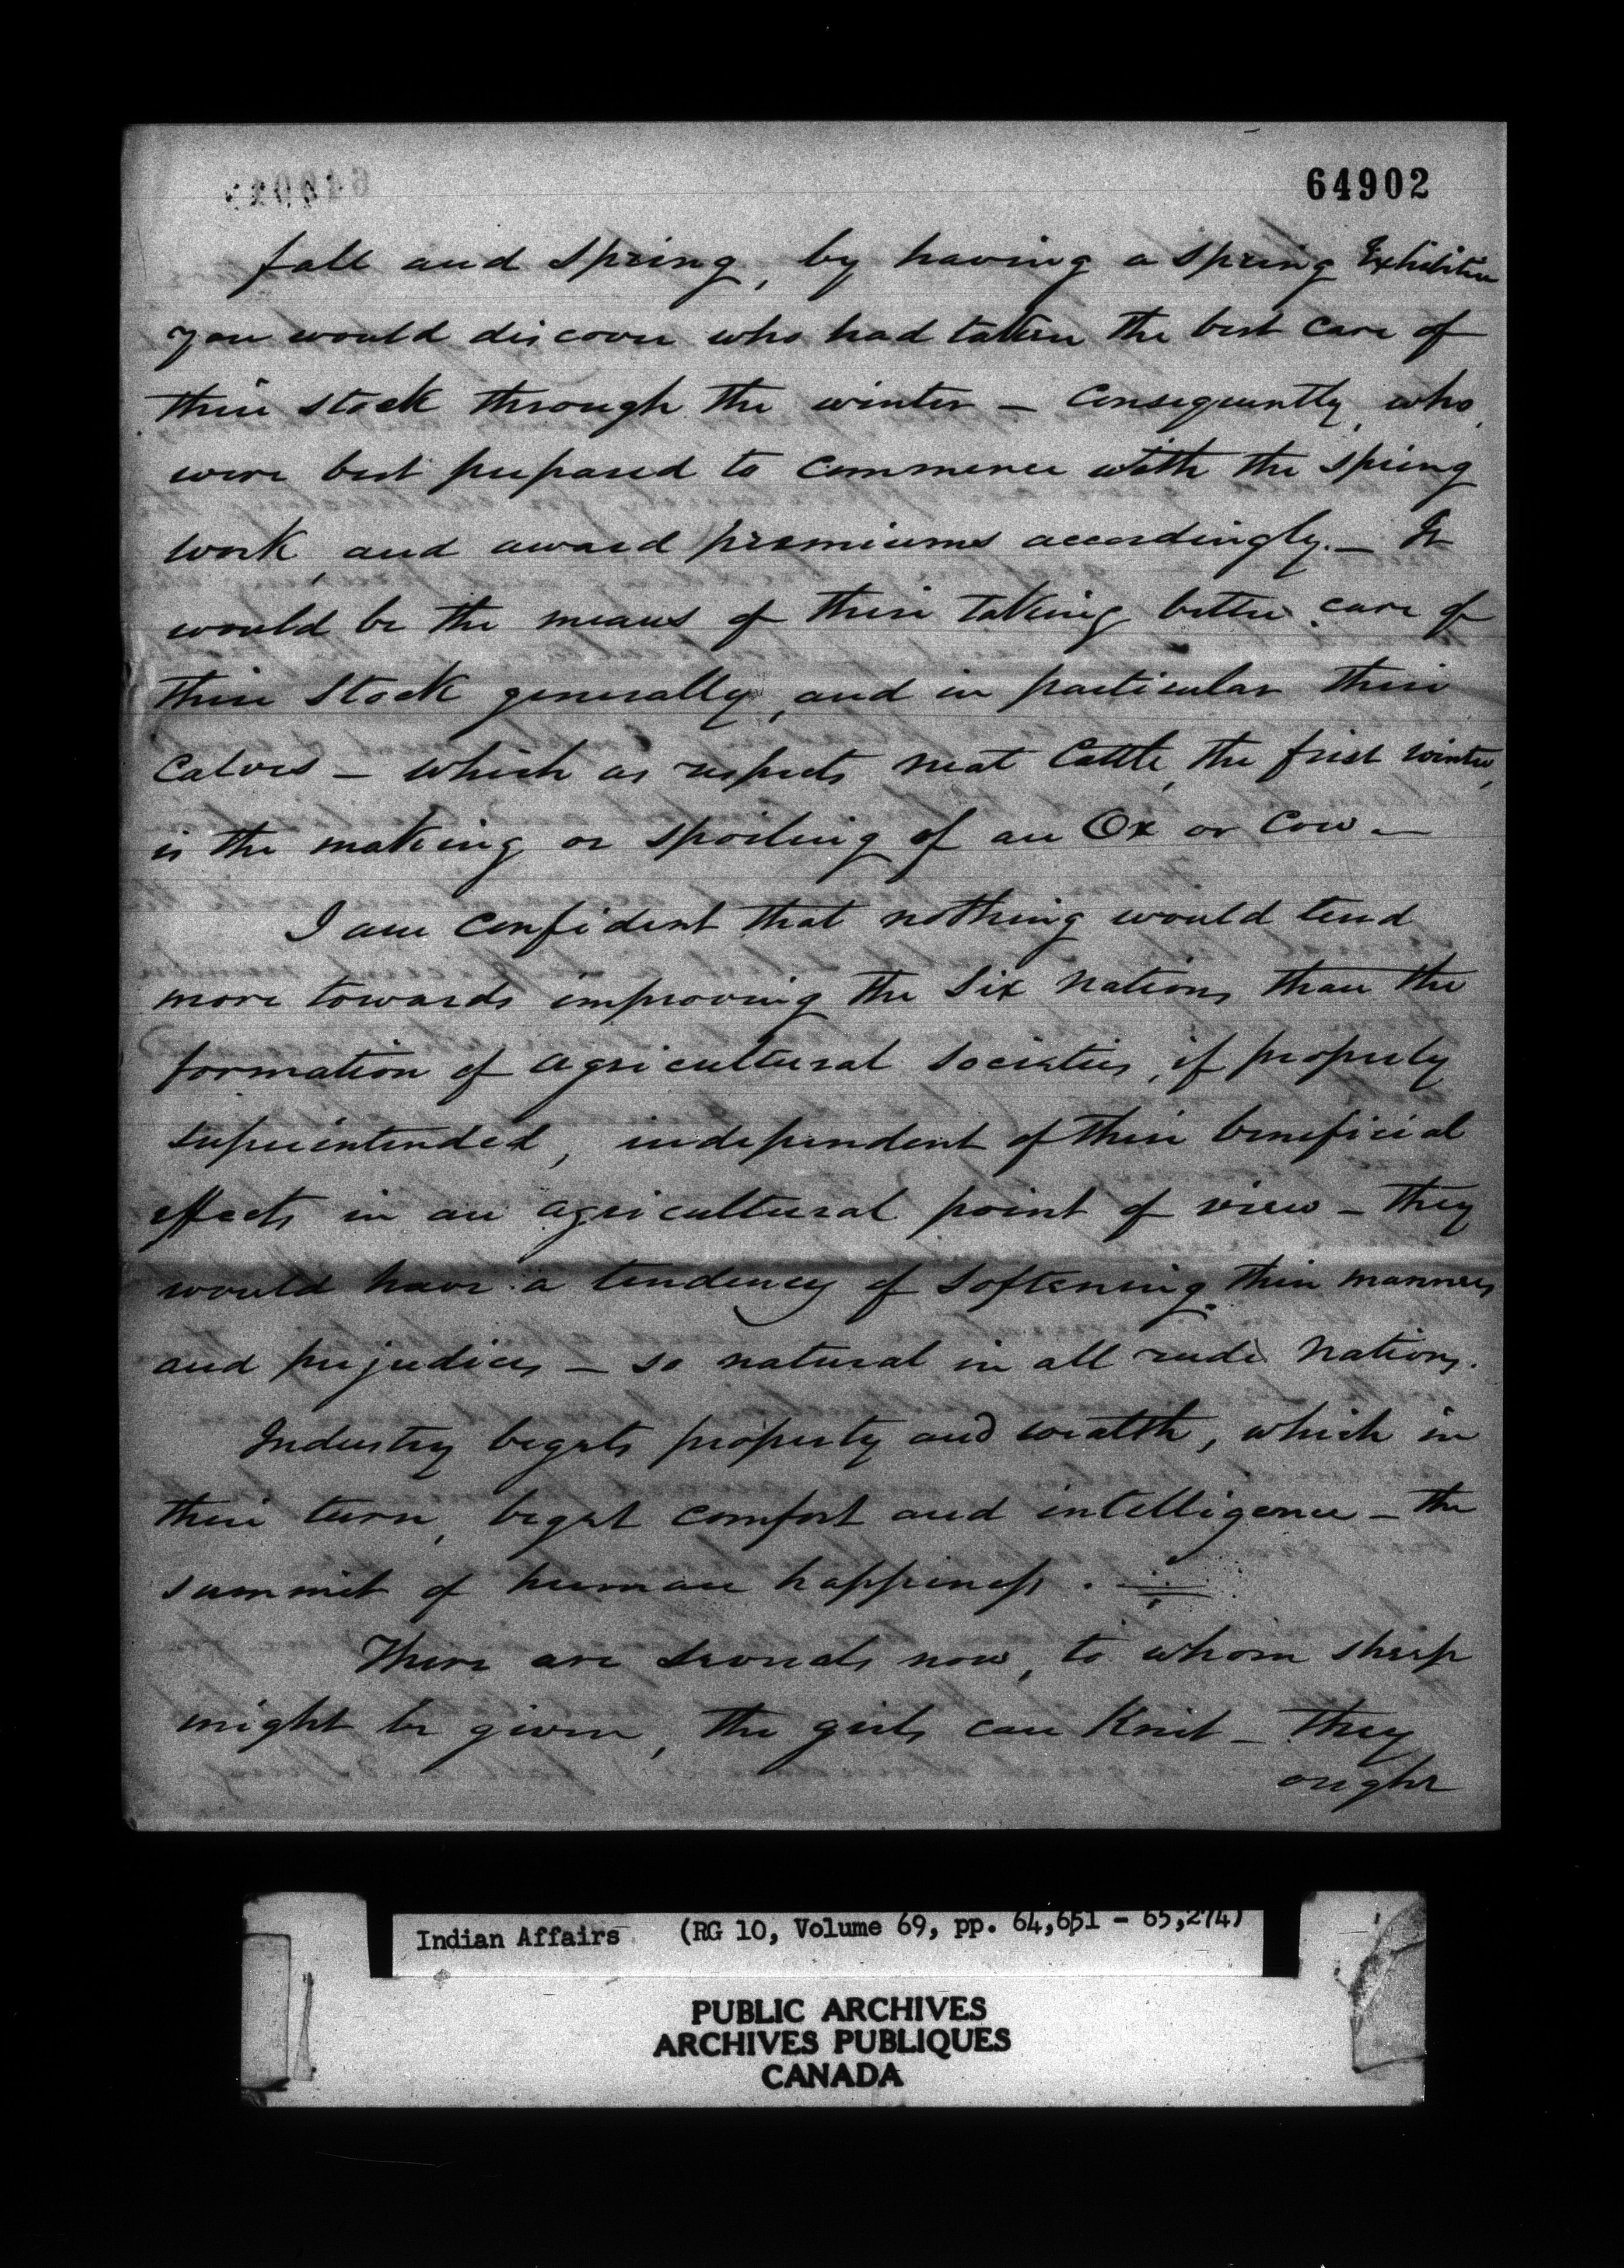 64902
fall and spring, by having a spring Exhibition
you would discover who had taken the best care of
their stock through the winter - Consequently, who,
were best prepared to commence with the spring
work, and award premiums accordingly. - It
would be the means of their taking better care of
their stock generally, and in particular their
Calves - which as respects neat Cattle, the first winter,
is the making or spoiling of an Ox or Cow -
I am confident that nothing would tend
more towards improving the Six Nations than the
formation of agricultural Societies, if properly
superintended, independent of their beneficial
effects in an agricultural point of view - they
would have a tendency of softening their manners
and prejudices - so natural in all rude Nations.
Industry begets property and wealth, which in
their turn, beget comfort and intelligence - the
summit of human happiness.
There are severals now, to whom sheep
might be given, the girls can Knit - they
ought
Indian Affairs (RG 10, Volume 69, pp. 64,651 - 65,274)
PUBLIC ARCHIVES
ARCHIVES PUBLIQUES
CANADA